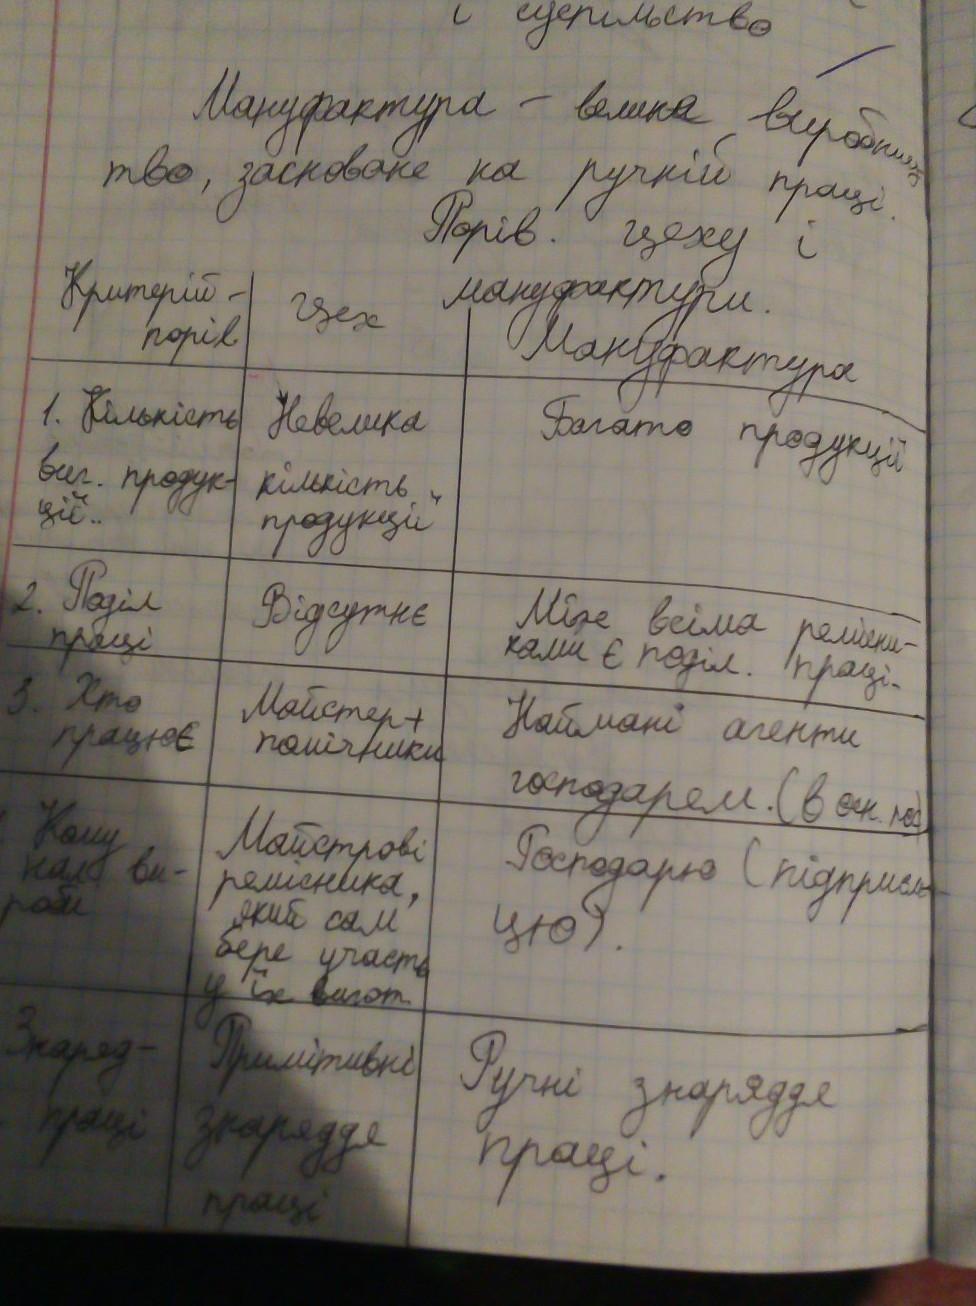 і суспільство
Мануфактура – велика виробниц
тво, засноване на ручній праці.
Порів. цеху і
мануфактури.
Критерій –
порів
Цех
Мануфактура
1. Кількість
виг. продук-
ції..
Невелика
кількість
продукції
Багато продукції
2. Поділ
праці
Відсутнє
Між всіма ремісни-
ками є поділ. праці.
3. Хто
працює
Майстер+
помічники
Наймані агенти
господарем. (в осн. пос)
Кому
нал ви-
роби
Майстрові
ремісника,
який сам
бере участь
у їх вигот.
Господарю (підприєм-
цю).
Знаряд-
праці
Примітивні
знаряддя
праці
Ручні знаряддя
праці.